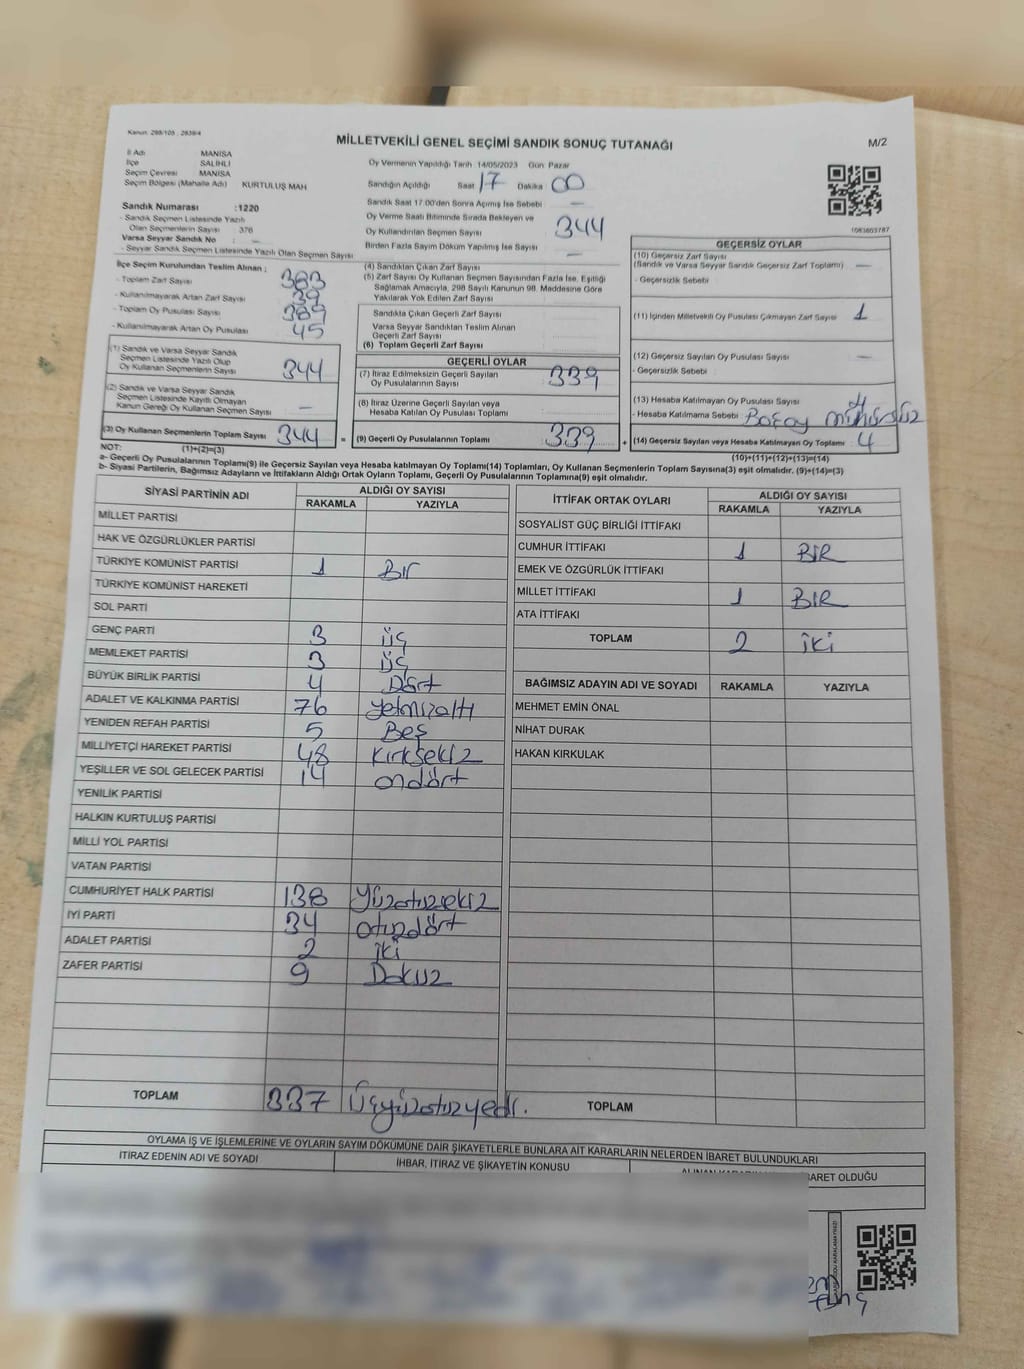 Kanun: 298/105 , 2839/4
MİLLETVEKİLİ GENEL SEÇİMİ SANDIK SONUÇ TUTANAĞI
M/2
İl Adı MANİSA
İlçe SALİHLİ
Seçim Çevresi MANİSA
Seçim Bölgesi (Mahalle Adı) KURTULUŞ MAH
Sandık Numarası :1220
- Sandık Seçmen Listesinde Yazılı
Olan Seçmenlerin Sayısı : 376
Varsa Seyyar Sandık No : -
- Seyyar Sandık Seçmen Listesinde Yazılı Olan Seçmen Sayısı
Oy Vermenin Yapıldığı Tarih 14/05/2023 Gün Pazar
Sandığın Açıldığı Saat 17 Dakika 00
Sandık Saat 17.00'den Sonra Açılmış İse Sebebi -
Oy Verme Saati Bitiminde Sırada Bekleyen ve
Oy Kullandırılan Seçmen Sayısı 344
Birden Fazla Sayım Döküm Yapılmış İse Sayısı -
1083603787
İlçe Seçim Kurulundan Teslim Alınan ;
- Toplam Zarf Sayısı 383
- Kullanılmayarak Artan Zarf Sayısı 39
- Toplam Oy Pusulası Sayısı 389
- Kullanılmayarak Artan Oy Pusulası 45
(1) Sandık ve Varsa Seyyar Sandık
Seçmen Listesinde Yazılı Olup
Oy Kullanan Seçmenlerin Sayısı 344
(2) Sandık ve Varsa Seyyar Sandık
Seçmen Listesinde Kayıtlı Olmayan
Kanun Gereği Oy Kullanan Seçmen Sayısı -
(3) Oy Kullanan Seçmenlerin Toplam Sayısı 344 =
(4) Sandıktan Çıkan Zarf Sayısı
(5) Zarf Sayısı Oy Kullanan Seçmen Sayısından Fazla İse, Eşitliği
Sağlamak Amacıyla, 298 Sayılı Kanunun 98. Maddesine Göre
Yakılarak Yok Edilen Zarf Sayısı
Sandıkta Çıkan Geçerli Zarf Sayısı
Varsa Seyyar Sandıktan Teslim Alınan
Geçerli Zarf Sayısı
(6) Toplam Geçerli Zarf Sayısı
GEÇERLİ OYLAR
(7) İtiraz Edilmeksizin Geçerli Sayılan
Oy Pusulalarının Sayısı 339
(8) İtiraz Üzerine Geçerli Sayılan veya
Hesaba Katılan Oy Pusulası Toplamı
(9) Geçerli Oy Pusulalarının Toplamı 339 +
GEÇERSİZ OYLAR
(10) Geçersiz Zarf Sayısı
(Sandık ve Varsa Seyyar Sandık Geçersiz Zarf Toplamı) -
- Geçersizlik Sebebi
(11) İçinden Milletvekili Oy Pusulası Çıkmayan Zarf Sayısı 1
(12) Geçersiz Sayılan Oy Pusulası Sayısı -
- Geçersizlik Sebebi
(13) Hesaba Katılmayan Oy Pusulası Sayısı 4
- Hesaba Katılmama Sebebi mühürsüz
(14) Geçersiz Sayılan veya Hesaba Katılmayan Oy Toplamı 4
NOT: (1)+(2)=(3)
(10)+(11)+(12)+(13)=(14)
a- Geçerli Oy Pusulalarının Toplamı(9) ile Geçersiz Sayılan veya Hesaba katılmayan Oy Toplamı(14) Toplamları, Oy Kullanan Seçmenlerin Toplam Sayısına(3) eşit olmalıdır. (9)+(14)=(3)
b- Siyasi Partilerin, Bağımsız Adayların ve İttifakların Aldığı Ortak Oyların Toplamı, Geçerli Oy Pusulalarının Toplamına(9) eşit olmalıdır.
SİYASİ PARTİNİN ADI ALDIĞI OY SAYISI
RAKAMLA YAZIYLA
MİLLET PARTİSİ
HAK VE ÖZGÜRLÜKLER PARTİSİ
TÜRKİYE KOMÜNİST PARTİSİ 1 Bir
TÜRKİYE KOMÜNİST HAREKETİ
SOL PARTİ
GENÇ PARTİ 3 üç
MEMLEKET PARTİSİ 3 üç
BÜYÜK BİRLİK PARTİSİ 4 Dört
ADALET VE KALKINMA PARTİSİ 76 yetmişaltı
YENİDEN REFAH PARTİSİ 5 Beş
MİLLİYETÇİ HAREKET PARTİSİ 48 kırksekiz
YEŞİLLER VE SOL GELECEK PARTİSİ 14 ondört
YENİLİK PARTİSİ
HALKIN KURTULUŞ PARTİSİ
MİLLİ YOL PARTİSİ
VATAN PARTİSİ
CUMHURİYET HALK PARTİSİ 138 Yüzotuzsekiz
İYİ PARTİ 34 otuzdört
ADALET PARTİSİ 2 iki
ZAFER PARTİSİ 9 Dokuz
TOPLAM 337 Üçyüzotuzyedi.
İTTİFAK ORTAK OYLARI ALDIĞI OY SAYISI
RAKAMLA YAZIYLA
SOSYALİST GÜÇ BİRLİĞİ İTTİFAKI
CUMHUR İTTİFAKI 1 BİR
EMEK VE ÖZGÜRLÜK İTTİFAKI
MİLLET İTTİFAKI 1 BİR
ATA İTTİFAKI
TOPLAM 2 iki
BAĞIMSIZ ADAYIN ADI VE SOYADI RAKAMLA YAZIYLA
MEHMET EMİN ÖNAL
NİHAT DURAK
HAKAN KIRKULAK
TOPLAM
OYLAMA İŞ VE İŞLEMLERİNE VE OYLARIN SAYIM DÖKÜMÜNE DAİR ŞİKAYETLERLE BUNLARA AİT KARARLARIN NELERDEN İBARET BULUNDUKLARI
İTİRAZ EDENİN ADI VE SOYADI
İHBAR, İTİRAZ VE ŞİKAYETİN KONUSU
İBARET OLDUĞU